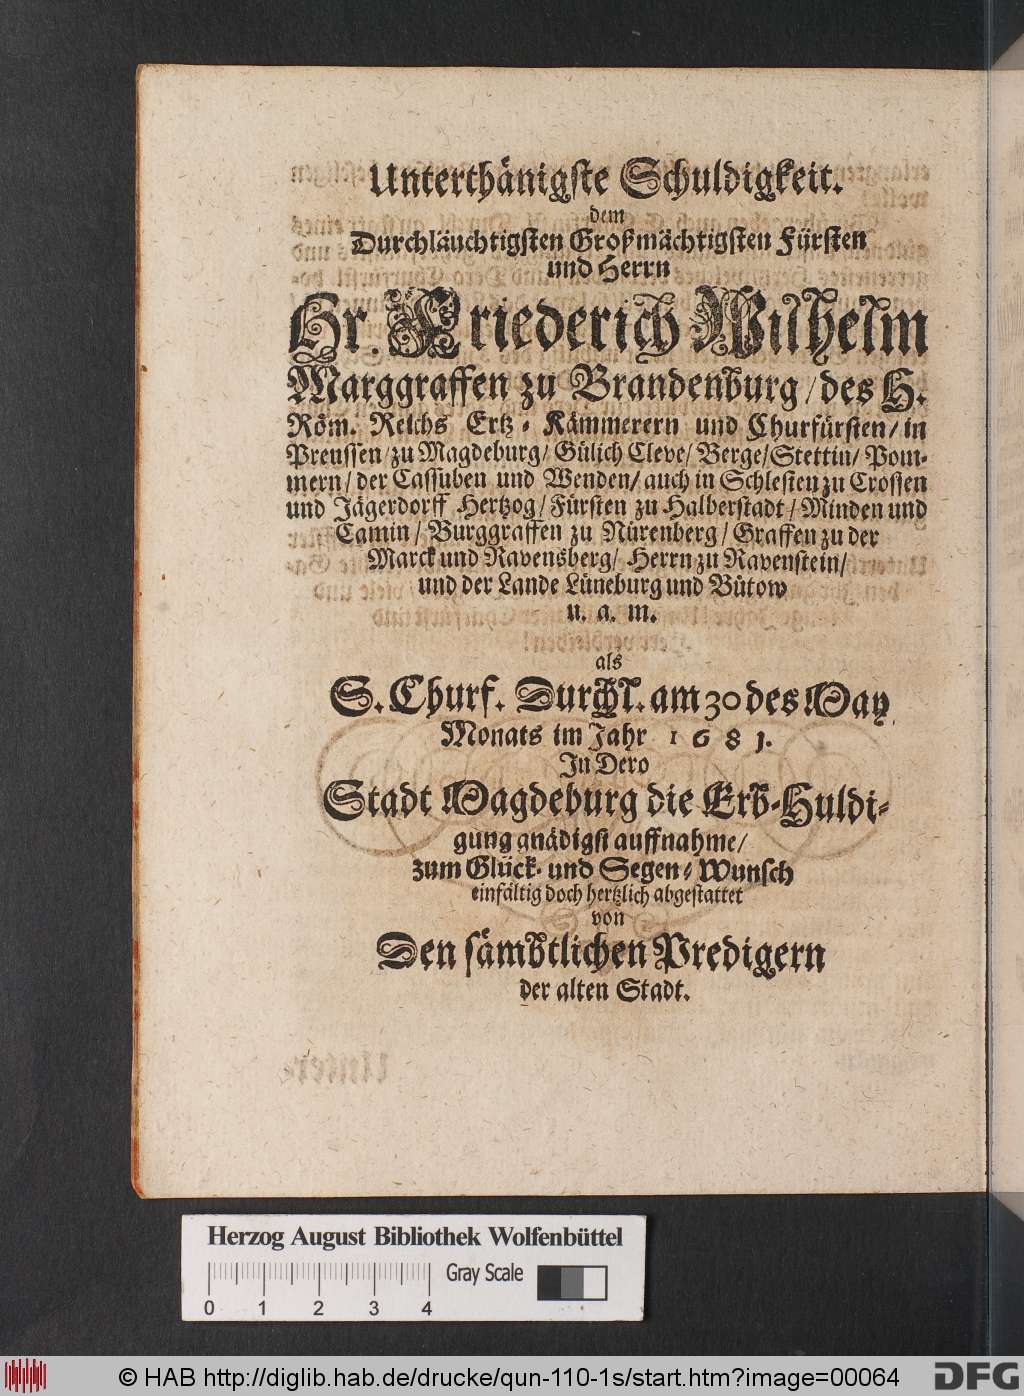 Unterthänigste Schuldigkeit.
dem
Durchläuchtigsten Großmächtigsten Fürsten
und Herrn
Hr. Friederich Wilhelm
Marggraffen zu Brandenburg/des H.
Röm. Reichs Ertz-Kämmerern und Churfürsten/in
Preussen/zu Magdeburg/Gülich Cleve/Berge/Stettin/Pom-
mern/der Cassuben und Wenden/auch in Schlesien zu Crossen
und Jägerdorff Hertzog/Fürsten zu Halberstadt/Minden und
Camin/Burggraffen zu Nürenberg/Graffen zu der
Marck und Ravensberg/Herrn zu Ravenstein/
und der Lande Lüneburg und Bütow
u. a. m.
als
S. Churf. Durchl. am 30 des May
Monats im Jahr 1681.
In Dero
Stadt Magdeburg die Erb-Huldi-
gung gnädigst auffnahme/
zum Glück- und Segen-Wunsch
einfältig doch hertzlich abgestattet
von
Den sämbtlichen Predigern
der alten Stadt.
Herzog August Bibliothek Wolfenbüttel
Gray Scale
0 1 2 3 4
© HAB http://diglib.hab.de/drucke/qun-110-1s/start.htm?image=00064
DFG